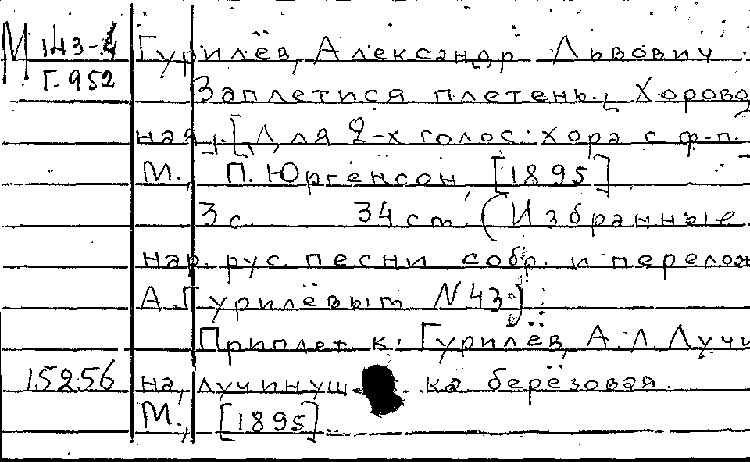 М 143-4 Гурилёв, Александр Львович.
Г-952 Заплетися плетень., Хоровод
ная,. [Для 2-х голос. хора с ф-п.
М., П. Юргенсон, [1895]
3 с. 34 см (Избранные
нар. рус. песни собр. и перелож
А. Гурилёвым N 43)
Приплет к: Гурилёв, А. Л. Лучи
15256 на, лучинушка берёзовая.
М., [1895].